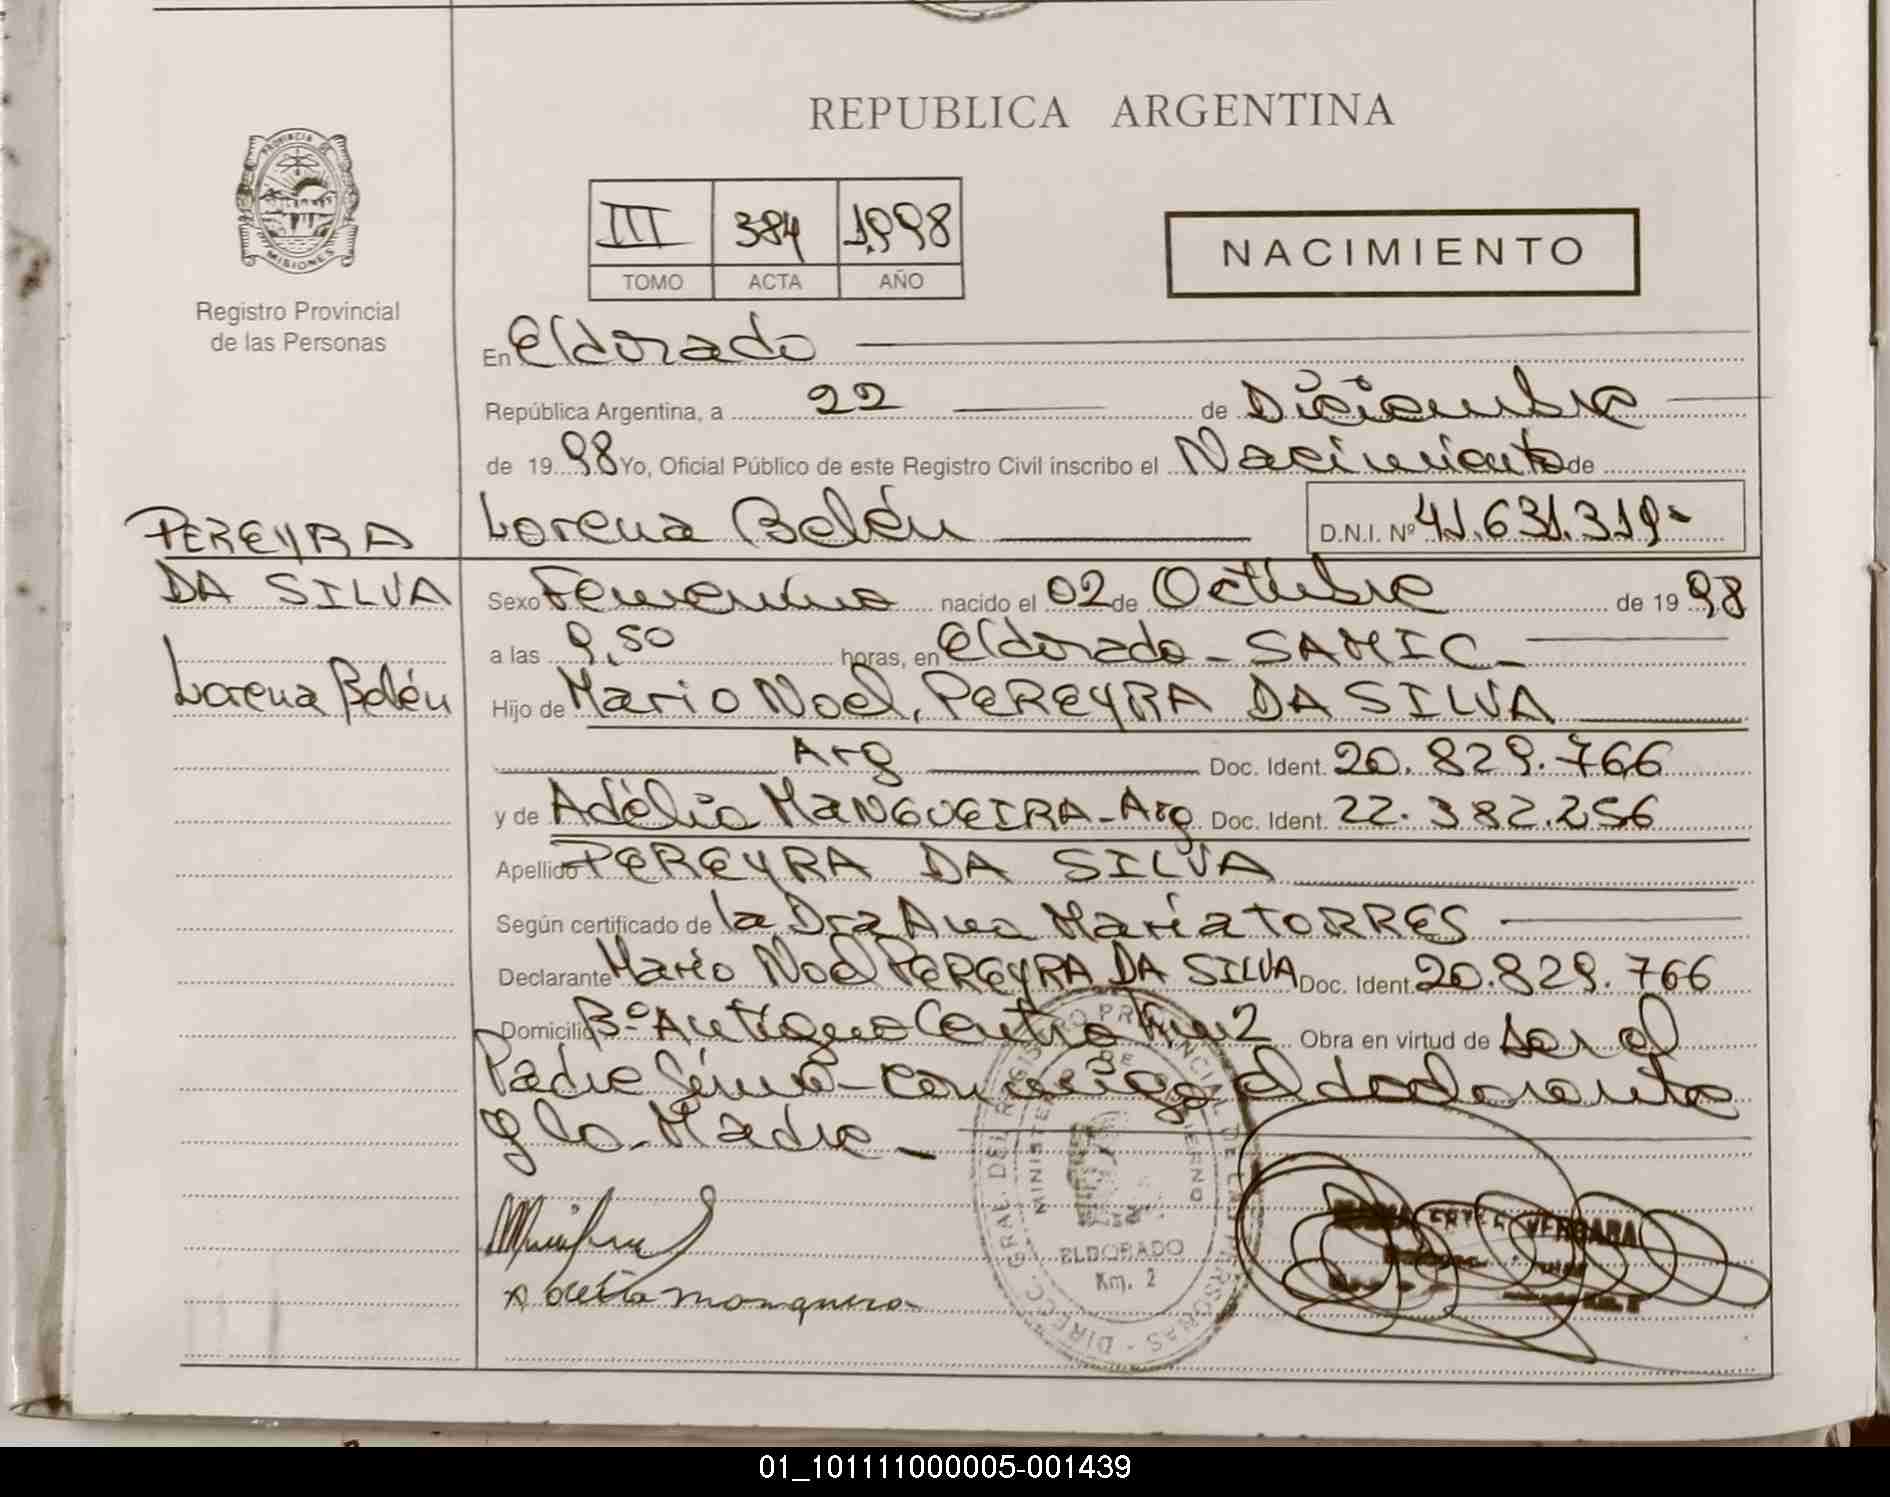 REPUBLICA ARGENTINA
PROVINCIA DE
MISIONES
Registro Provincial
de las Personas
III 384 1998
TOMO ACTA AÑO
NACIMIENTO
En Eldorado
República Argentina, a 22 de Diciembre
de 1998 Yo, Oficial Público de este Registro Civil inscribo el Nacimiento de
Lorena Belén D.N.I. Nº 41.631.319-
PEREYRA
DA SILVA
Lorena Belén
Sexo Femenino nacido el 02 de Octubre de 1998
a las 9,50 horas, en Eldorado - SAMIC -
Hijo de Mario Noel, PEREYRA DA SILVA
Arg Doc. Ident. 20.829.766
y de Adélia MANGUEIRA - Arg Doc. Ident. 22.382.256
Apellido PEREYRA DA SILVA
Según certificado de la Dra Ana María TORRES
Declarante Mario Noel PEREYRA DA SILVA Doc. Ident. 20.829.766
Domicilio Bº Antiguo Centro km 2 Obra en virtud de ser el
Padre firma conmigo el declarante
y la Madre -
MINISTERIO DE GOBIERNO
ELDORADO
Km. 2
VERGARA
01_101111000005-001439